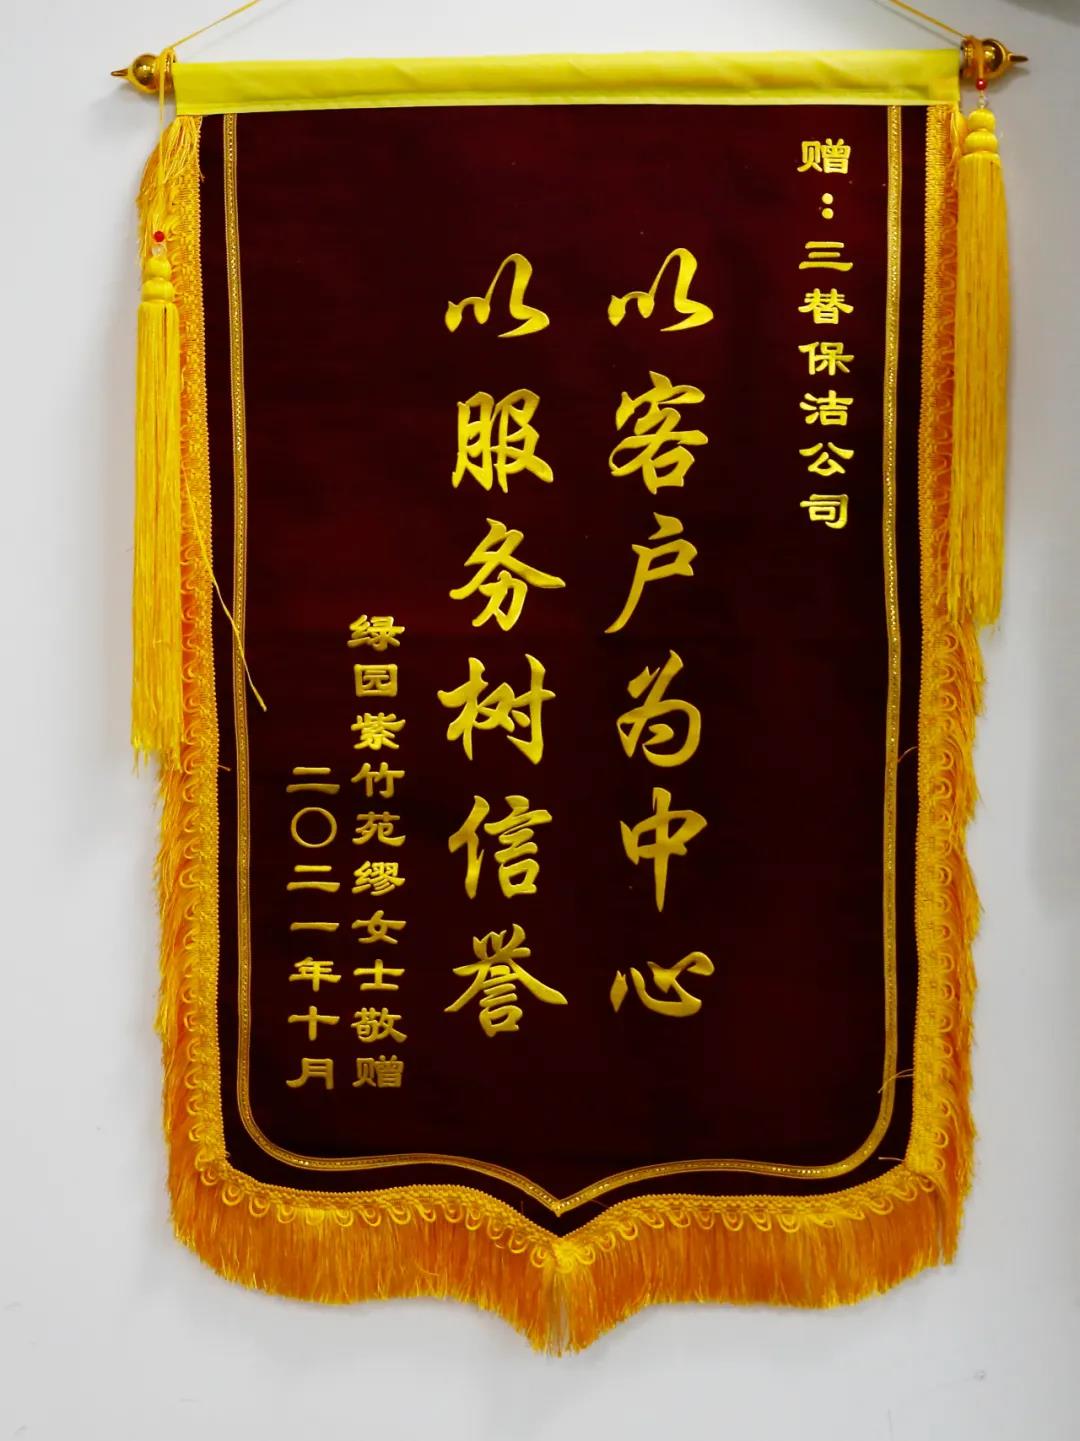 赠：三替保洁公司
以客户为中心
以服务树信誉
绿园紫竹苑缪女士敬赠
二〇二一年十月